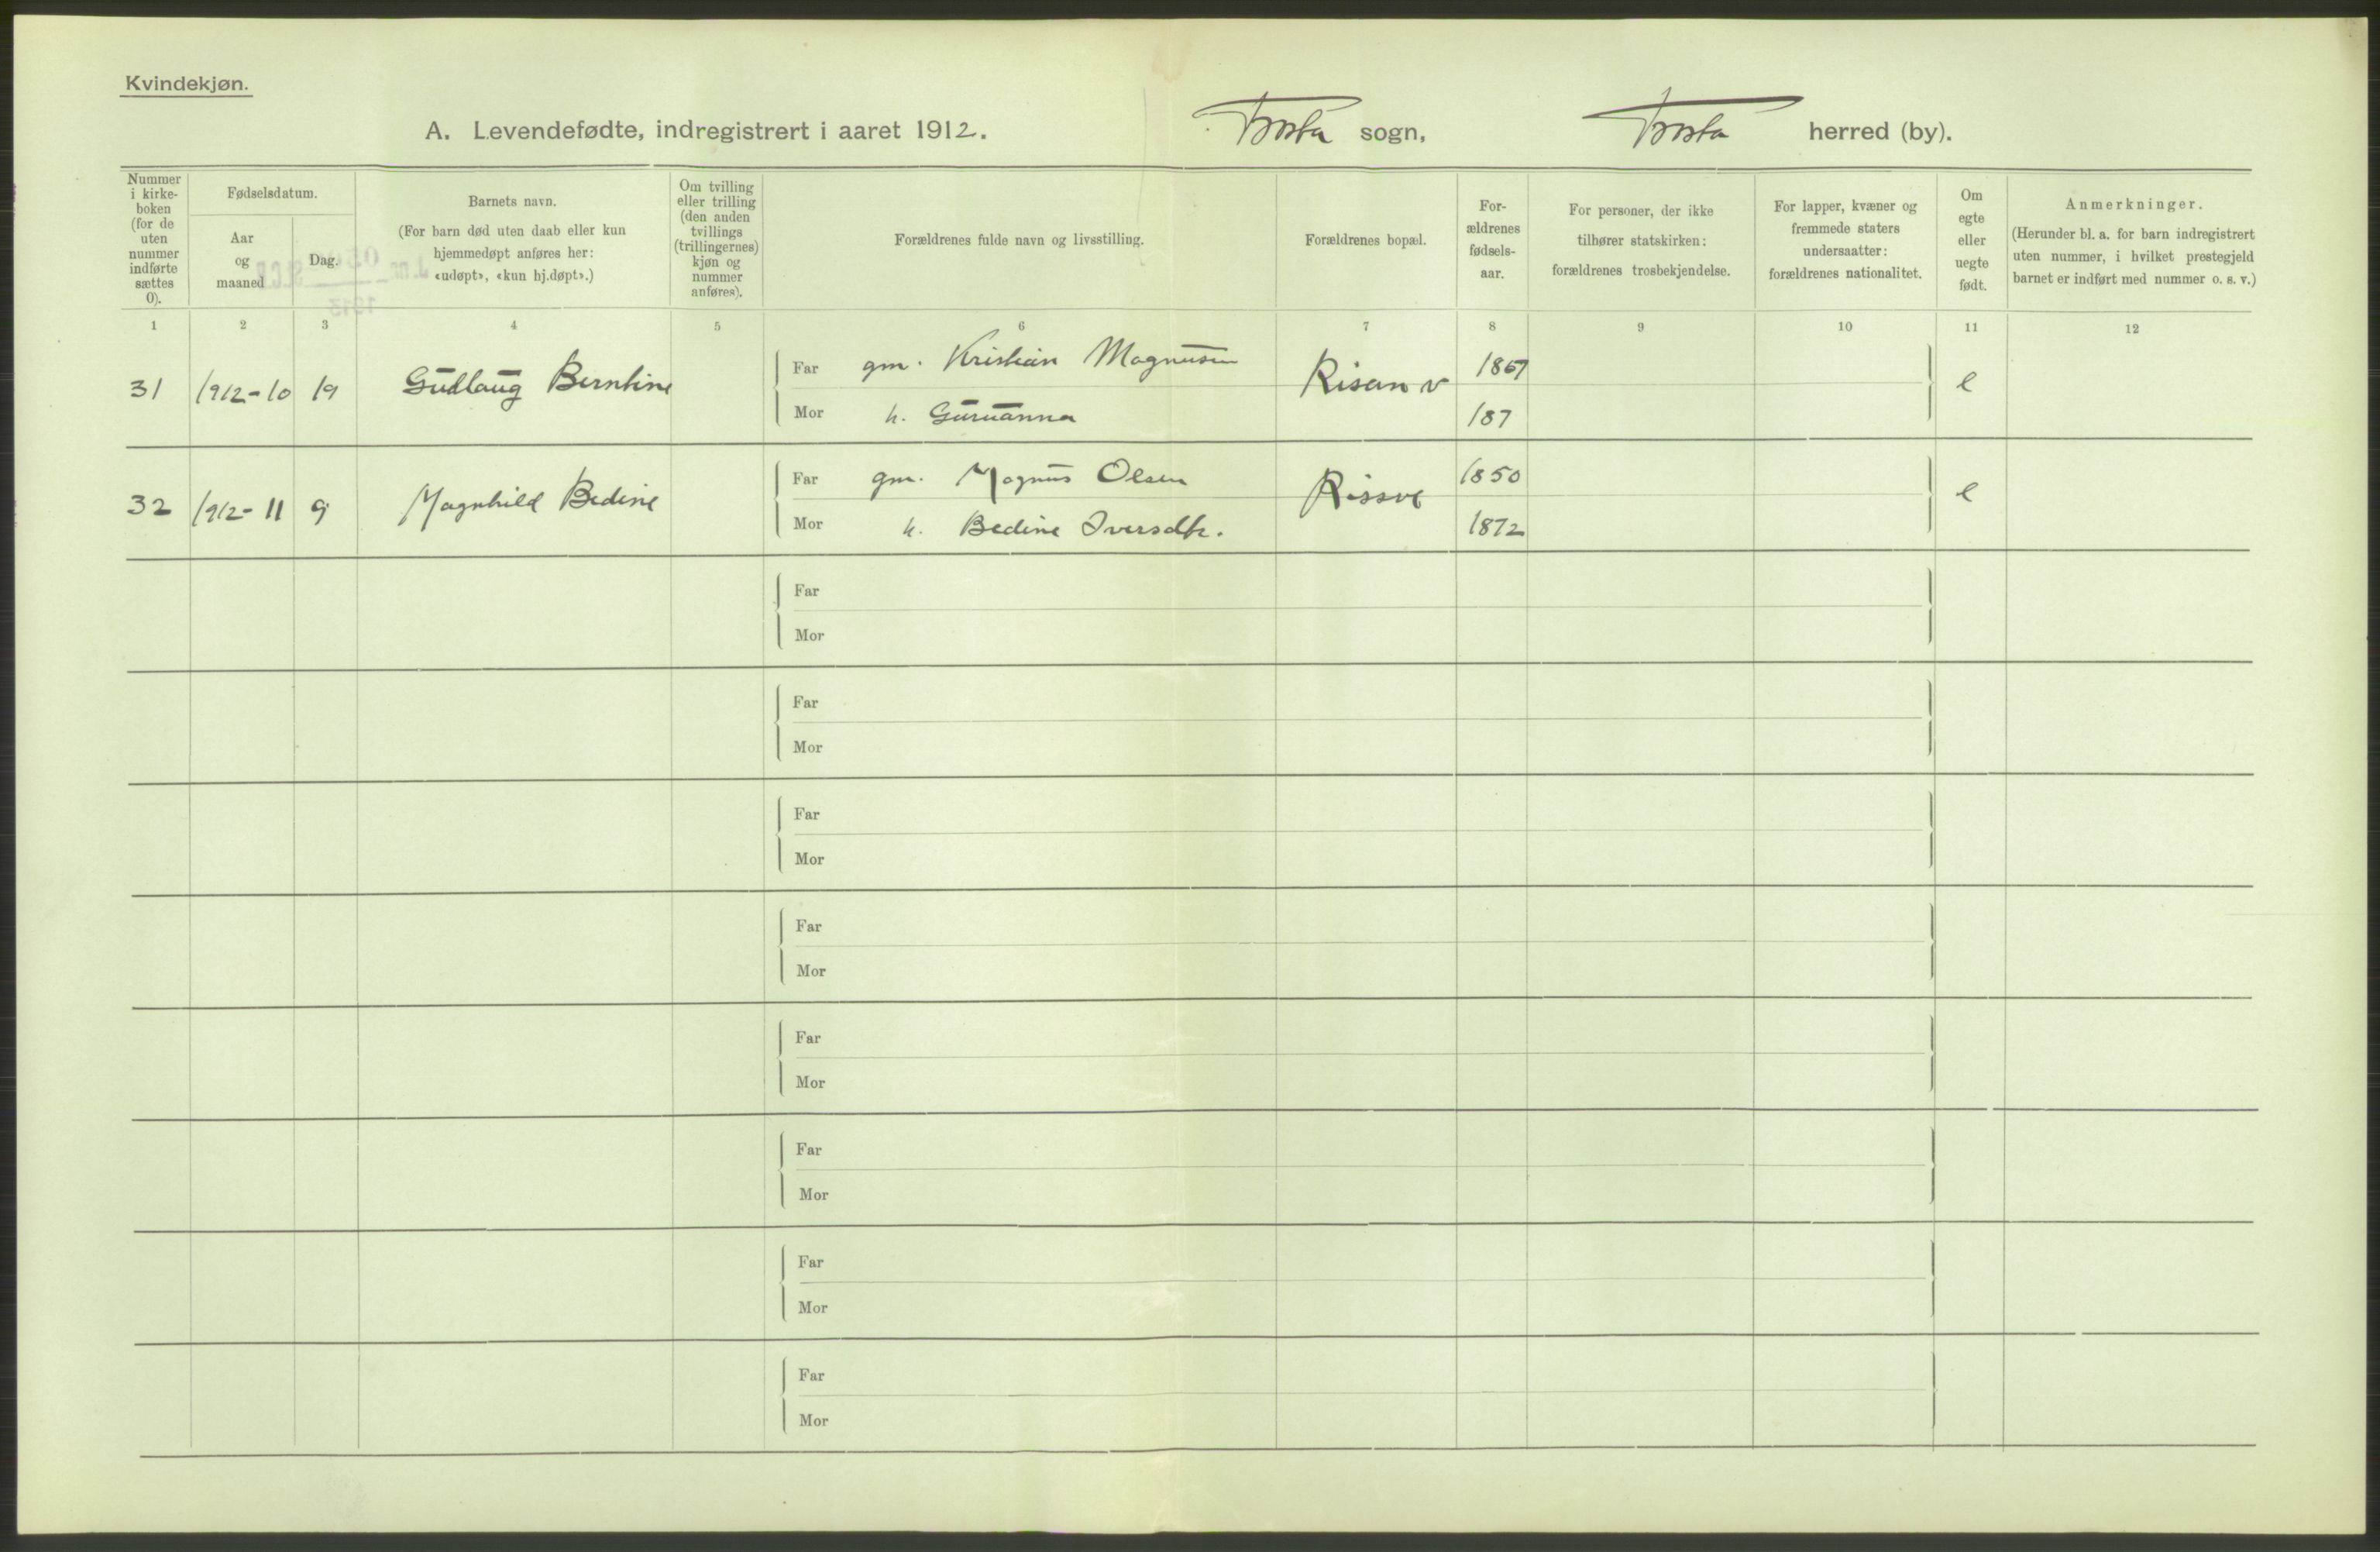 Kvindekjøn.
A. Levendefødte, indregistrert i aaret 1912. sogn, herred (by).
Nummer i kirke-boken (for de uten nummer indførte sættes 0).
Fødselsdatum.
Aar og maaned
Dag.
Barnets navn.
(For barn død uten daab eller kun hjemmedøpt anføres her: «udøpt», «kun hj.døpt».)
Om tvilling eller trilling (den anden tvillings (trillingernes) kjøn og nummer anføres).
Forældrenes fulde navn og livsstilling.
Forældrenes bopæl.
For-ældrenes fødsels-aar.
For personer, der ikke tilhører statskirken: forældrenes trosbekjendelse.
For lapper, kvæner og fremmede staters undersaatter: forældrenes nationalitet.
Om egte eller uegte født.
Anmerkninger.
(Herunder bl. a. for barn indregistrert uten nummer, i hvilket prestegjeld barnet er indført med nummer o. s. v.)
1 2 3 4 5 6 7 8 9 10 11 12
31 1912-10 19 Gudlaug Berntine Far gm. Kristian Magnusen Risan v 1867 e
Mor h. 187
32 1912-11 9 Magnhild Bedine Far gm. Magnus Olsen 1850 e
Mor h. Bedine Iversdtr. 1872
Far
Mor
Far
Mor
Far
Mor
Far
Mor
Far
Mor
Far
Mor
Far
Mor
Far
Mor